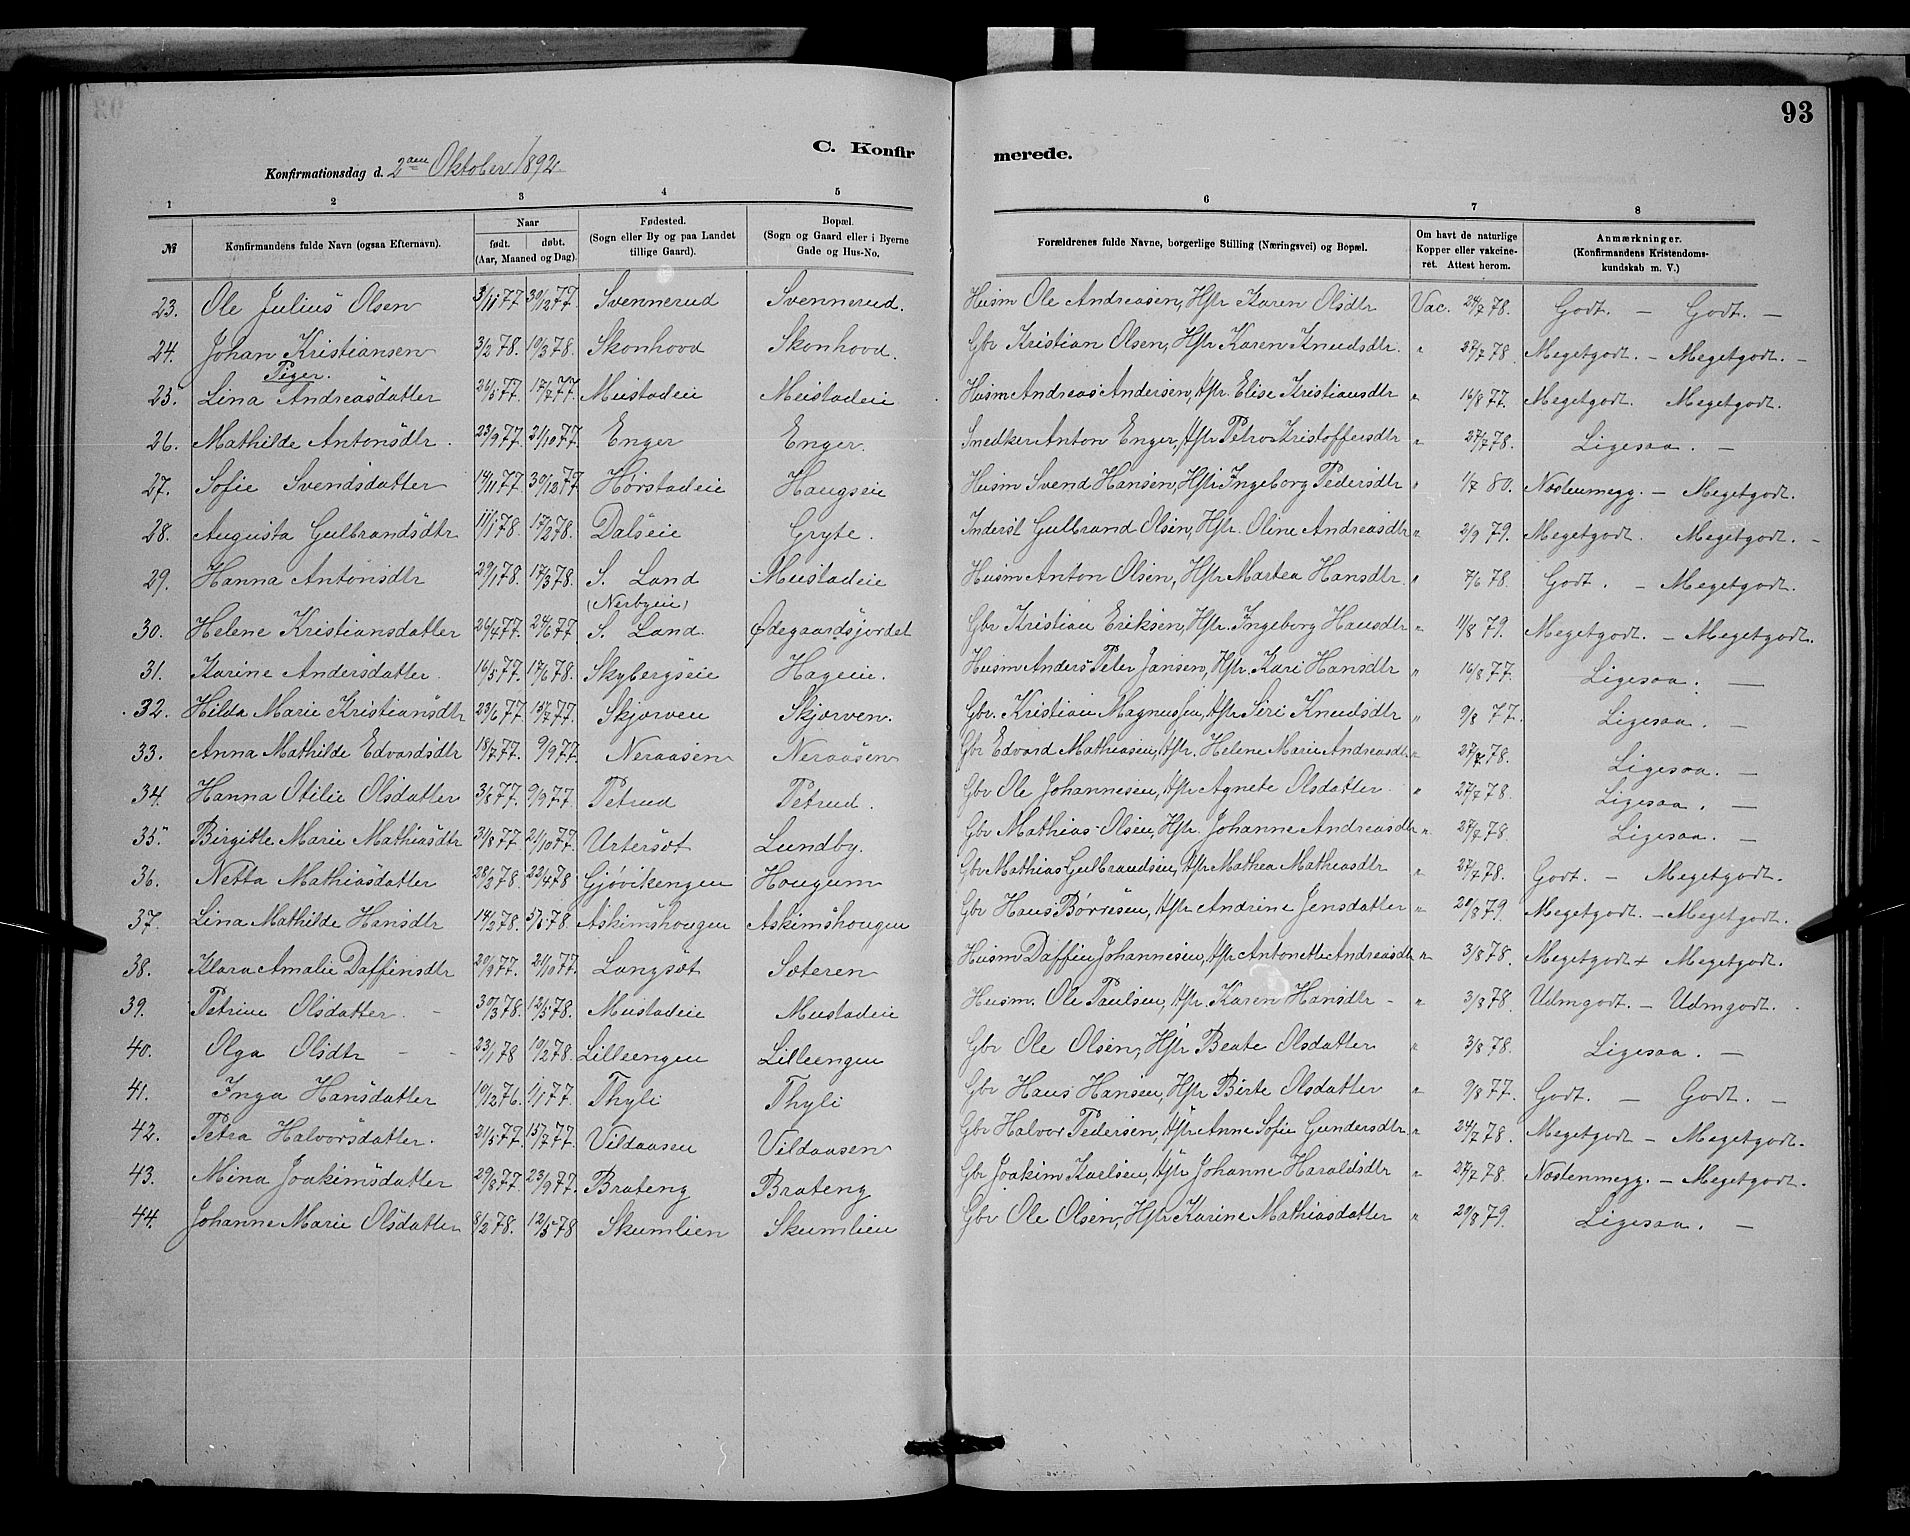 93
C. Konfirmerede.
Konfirmationsdag d. 2den Oktober 1892
1 2 3 4 5 6 7 8
№ Konfirmandens fulde Navn (ogsaa Efternavn). Naar født. døbt. (Aar, Maaned og Dag). Fødested. (Sogn eller By og paa Landet tillige Gaard). Bopæl. (Sogn og Gaard eller i Byerne Gade og Hus-No. Forældrenes fulde Navne, borgerlige Stilling (Næringsvei) og Bopæl. Om havt de naturlige Kopper eller vakcineret. Attest herom. Anmærkninger. (Konfirmandens Kristendomskundskab m. V.)
23. Ole Julius Olsen 3/11 77 30/12 77. Svennerud Svennerud. Husm Ole Andreasen, Hstr Karen Olsdtr Vac. 24/7 78. Godt. — Godt. —
24. Johan Kristiansen 3/2 78. 10/3 78. Skonhovd Skonhovd. Gbr Kristian Olsen, Hstr Karen Knudsdtr. " 27/7 78. Megetgodt. — Megetgodt. —
Piger.
25. Lina Andreasdatter 26/5 77. 17/7 77. Mustadeie Mustadeie Husm Andreas Andersen, Hstr. Elise Kristiansdtr " 16/8 77. Megetgodt. Megetgodt.
26. Mathilde Antonsdtr. 23/9 77. 21/10 77. Enger Enger. Snedker Anton Enger, Hstr Petra Kristoffersdtr " 27/7 78. Ligesaa. —
27. Sofie Svendsdatter 14/11 77. 30/12 77 Hørstadeie Haugseie Husm Svend Hansen, Hstr Ingeborg Pedersdtr " 1/7 80. Næstenmegg. — Megetgodt.
28. Augusta Gulbrandsdtr 11/1 78. 17/2 78. Dalseie Gryte. Inderst Gulbrand Olsen, Hstr. Oline Andreasdtr " 2/9 79. Megetgodt. Megetgodt. —
29. Hanna Antonsdtr 29/1 78. 17/3 78. S. Land (Nerbyeie) Mustadeie Husm Anton Olsen, Hstr Martea Hansdtr. " 7/6 78. Godt. — Megetgodt.
30. Helene Kristiansdatter 26/4 77. 24/6 77 S. Land. Ødegaardsjordet Gbr Kristian Eriksen, Hstr. Ingeborg Hansdtr " 11/8 79. Megetgodt. — Megetgodt.
31. Karine Andersdatter. 16/5 77. 17/6 78. Skybergseie Hageie. Husm Anders Peter Jansen, Hstr. Kari Hansdtr " 16/8 77. Ligesaa. —
32. Hilda Marie Kristiansdtr 23/6 77 15/7 77. Skjørven Skjørven. Gbr. Kristian Magnussen, Hstr Siri Knudsdtr " 9/8 77. Ligesaa. —
33. Anna Mathilde Edvardsdtr 18/7 77. 9/9 77. Neraasen Neraasen Gbr Edvard Mathiasen, Hstr. Helene Marie Andreasdtr. " 27/7 78. Ligesaa. —
34. Hanna Otilie Olsdatter 3/8 77. 9/9 77. Petrud Petrud. Gbr Ole Johannesen, Hstr Agnete Olsdatter. " 27/7 78. Ligesaa. —
35. Birgitte Marie Mathiasdtr 31/8 77 21/10 77. Urtersæt Lundby. Gbr Mathias Olsen, Hstr. Johanne Andreasdtr " 27/7 78 Ligesaa. —
36. Netta Mathiasdatter 28/2 78. 22/4 78 Gjøvikengen Hougum Gbr Mathias Gulbrandsen, Hstr Mathea Mathiasdtr " 27/7 78. Godt. — Megetgodt.
37. Lina Mathilde Hansdtr 14/2 78. 5/5 78. Askimshougen Askimshougen Gbr Hans Børresen, Hstr Andrine Jensdatter " 20/8 79. Megetgodt. — Megetgodt.
38. Klara Amalie Daffinsdtr 20/9 77. 21/10 77. Langsæt Sæteren Husm Daffin Johannesen, Hstr Antonette Andreasdtr " 3/8 78. Megetgodt Megetgodt.
39. Petrine Olsdatter. — 30/3 78. 12/5 78. Mustadeie Mustadeie Husm. Ole Paulsen, Hstr. Karen Hansdtr — " 3/8 78 Udmgodt. — Udmgodt.
40. Olga Olsdtr — — 23/1 78 10/2 78. Lilleengen Lilleengen Gbr Ole Olsen, Hstr Beate Olsdatter " 3/8 78. Ligesaa. —
41. Inga Hansdatter 10/12 76. 1/1 77. Thyli Thyli Gbr Hans Hansen, Hstr Birte Olsdatter " 9/8 77. Godt. — Godt. —
42. Petra Halvorsdatter. 21/5 77. 15/7 77. Vildaasen Vildaasen Gbr Halvor Pedersen, Hstr Anne Sofie Gundersdtr " 24/7 78. Megetgodt — Megetgodt.
43. Mina Joakimsdatter 29/8 77. 23/9 77. Brateng Brateng Gbr Joakim Karlsen, Hstr Johanne Haraldsdtr " 27/7 78. Næstenmegg. — Megetgodt.
44. Johanne Marie Olsdatter 8/2 78. 12/5 78 Skumlien Skumlien Gbr Ole Olsen, Hstr Karine Mathiasdatter " 29/8 79. Ligesaa. —